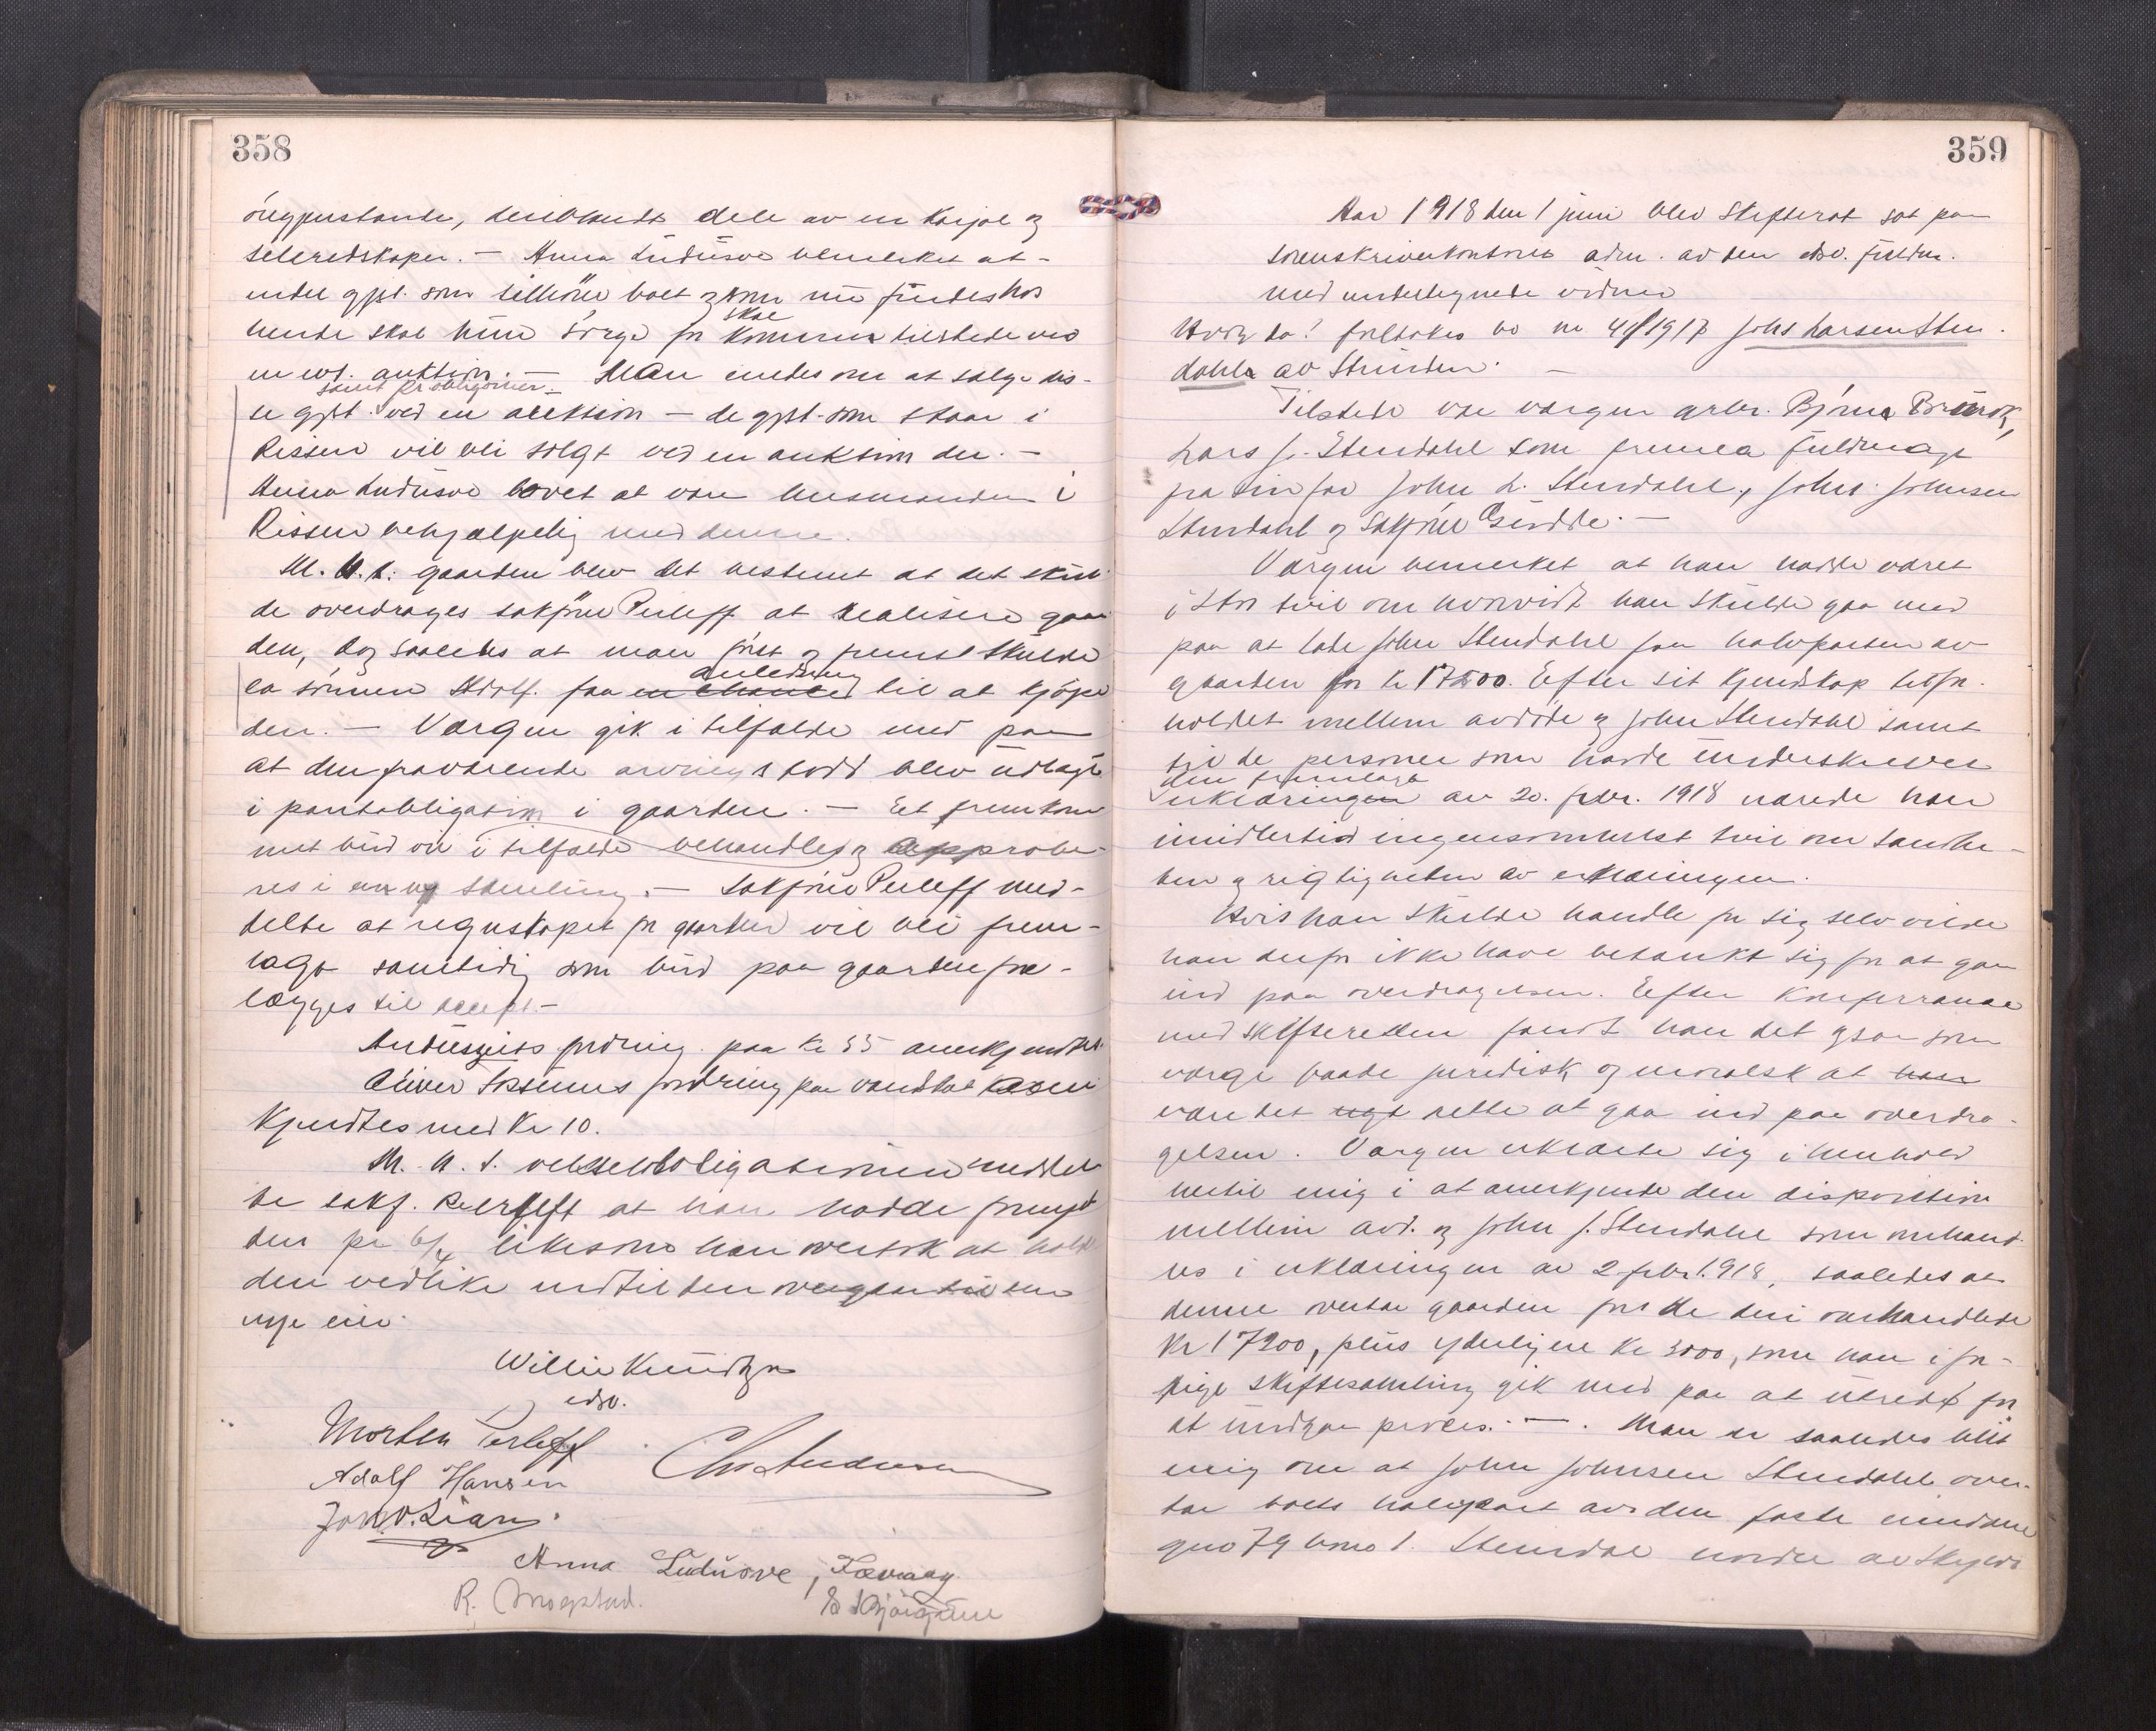 358
deriblandt dele av en Karjol og
seleredskaper. — Anna Ludusve bemerket at
endel gjst. som tilhörer boet og som nu findes hos
skal
hende skal hun sörge for kommer tilstede ved
en evt. auktion. — Man enedes om at selge dis-
samt pr obligioner.
se gjst. ved en auktion — de gjst. som staar i
Rissen vil bli solgt ved en auktion der. —
Anna Ludusve lovet at være husmanden i
Rissen behjælpelig med denne.
M. H. t. gaarden blev det bestemt at det skul-
de overdrages sakförer Perleff at realisere gaar
den, dog saaledes at man först og fremst skulde
anledning
la sönnen Adolf faa en chance til at kjöpe
den. — Vergen gik i tilfælde med paa
at den fraværende arvings lodd blev utlagt
i pantobligation i gaarden. — Et fremkom
met bud vil i tilfælde behandles og approbe-
res i en ny samling. — Sakförer Perleff med-
delte at regnskapet for gaarden vil bli frem-
lagt samtidig som bud paa gaarden fre-
lægges til accept —
fordring paa kr 55 anerkjendtes
fordring paa vandtol aner
kjendtes med Kr 10.
M. H. t. vekselobligationen meddel
te sakf. Perleff at han hadde fornyet
den pr 6/4 likesom han overtok at holde
den vedlike indtil den
nye eier.
Willie Knudtzon
edsv.
Morten Perleff Chr Andersen
Adolf Hansen
Jon O. Lian
Anna Ludusve, Forvaag
R. Mogstad. E Bjørgaune
359
Aar 1918 den 1 juni blev skifteret sat paa
sorenskriverkontoret adm. av den edsv. fuldm.
med undertegnede vidner
Hvor da! foretokes bo nr 41/1917 Johs Larsen Sten
dahl av Strinden. —
Tilstede var vergen arbr. Björn Brurok,
Lars J. Stendahl som fremla fuldmagt
fra sin far John L. Stendahl, John Johnsen
Stendahl og Sakförer Gisvold. —
Vergen bemerket at han hadde været
i stor tvil om hvorvidt han skulde gaa med
paa at late John Stendahl faa halvparten av
gaarden for kr 17200. Efter sit kjendskap til for-
holdet mellem avdöde og John Stendahl samt
til de personer som havde underskrevet
den fremlagte
erklæringen av 20. febr. 1918 nærede han
imidlertid ingensomhelst tvil om sandhe-
den og rigtigheten av erklæringen.
Hvis han skulde handle for sig selv vilde
han derfor ikke have betænkt sig for at gaa
ind paa overdragelsen. Efter konferranse
med skifteretten fandt han det ogsaa som
verge baade juridisk og moralsk at han
være det rigt rette at gaa ind paa overdra-
gelsen. Vergen erklærte sig i henhold
hertil enig i at anerkjende den disposition
mellem avd. og John J. Stendahl som omhand-
les i erklæringen av 2 febr. 1918, saaledes at
denne overtar gaarden for de deri omhandlede
Kr 17200, plus yderligere kr 3000, som han i for-
rige skiftesamling gik med paa at utrede for
at undgaa proces. — . Man er saaledes blit
enig om at John Johnsen Stendahl over-
tar boets halvpart av den faste eiendom
gno 79 bno 1. Stendal nordre av skyld